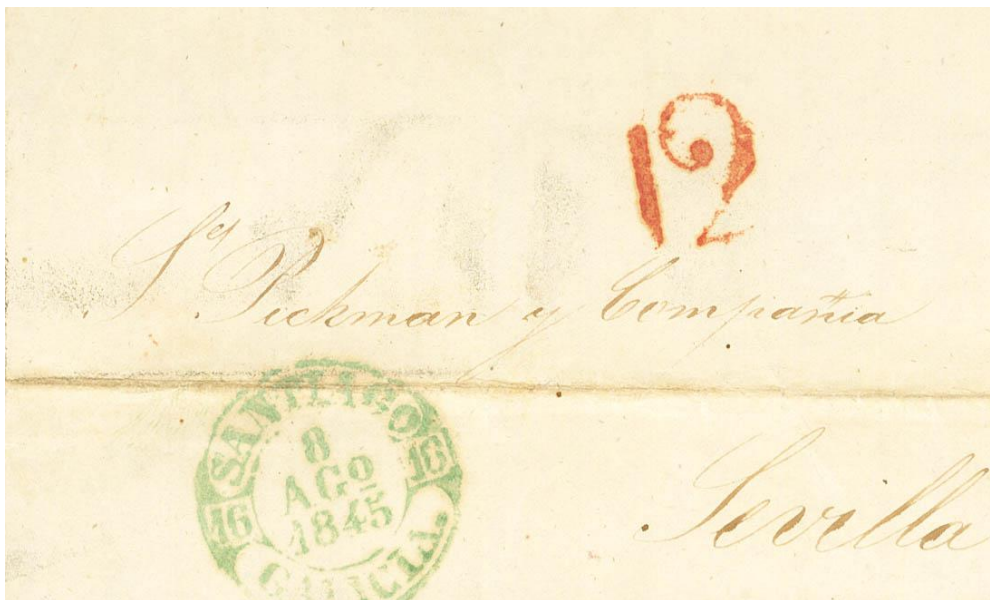 12
Sʳ Pickman y Compañia
SANTIAGO
8
AGO
1845
16 16
GALICIA.
Sevilla